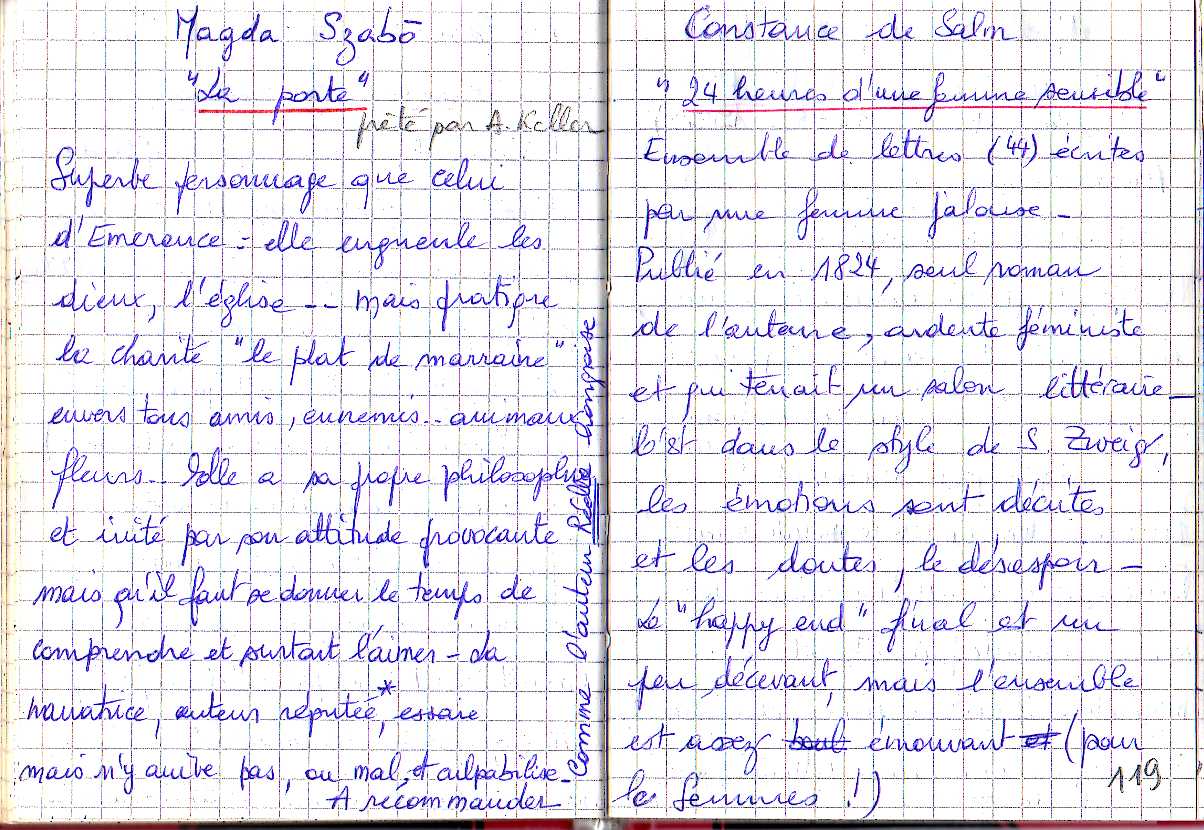 Magda Szabō
"La porte"
prêté par A. Keller
Superbe personnage que celui
d'Emerance = elle engueule les
dieux, l'église -- mais pratique
la charité "le plat de marraine"
envers tous amis, ennemis.. animaux
fleurs.. Elle a sa propre philosophie
et irrité par son attitude provocante
mais qu'il faut se donner le temps de
comprendre et surtout l'aimer - La
narratrice, auteur réputée,* essaie
mais n'y arrive pas, ou mal, et culpabilise -
A recommander
* Comme l'auteur Réelle hongroise
Constance de Salm
"24 heures d'une femme sensible"
Ensemble de lettres (44) écrites
par une femme jalouse -
Publié en 1824, seul roman
de l'auteure, ardente féministe
et qui tenait un salon littéraire -
C'est dans le style de S. Zweig,
les émotions sont décrites
et les doutes, le désespoir -
Le "happy end" final est un
peu décevant, mais l'ensemble
est assez émouvant (pour
les femmes !)
119